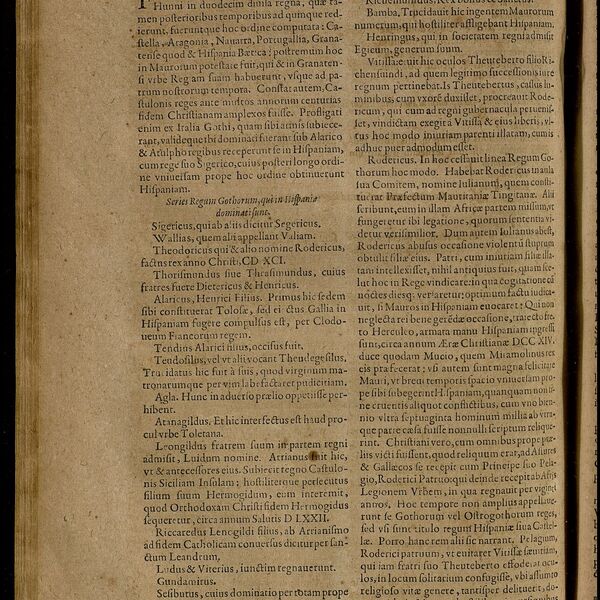 Hunni in duodecim divisa regna, quæ ta-
men posterioribus temporibus ad quinque redi-
ierunt. fueruntque hoc ordine computata: Ca-
stella, Aragonia, Nauarra, Portugallia, Granat-
ense quod & Hispania Bætica: postremum hoc
in Maurorum potestate fuit, qui & in Granaten-
si vrbe Regiam suam habuerunt, vsque ad pa-
trum nostrorum tempora. Constat autem, Ca-
stulonis reges ante multos annorum centurias
fidem Christianam amplexos fuisse. Profligati
enim ex Italia Gothi, quam sibi antis subiece-
rant, valideque ibi dominati fuerant sub Alarico
& Atulpho regibus receperunt se in Hispaniam,
cum rege suo Sigerico, cuius posteri longo ordi-
ne vniuersam prope hoc ordine obtinuerunt
Hispaniam.
Series Regum Gothorum, qui in Hispania
dominati sunt.
Sigericus, qui ab aliis dicitur Segericus.
Wallias, quem alii appellant Valiam.
Theodoricus qui & alio nomine Rodericus,
factus rex anno Christi, CD XCI.
Thorismundus siue Thrasimundus, cuius
fratres fuere Dietericus & Henricus.
Alaricus, Henrici Filius. Primus hic sedem
sibi constituerat Tolosæ, sed eiectus Gallia in
Hispaniam fugere compulsus est, per Clodo-
ueum Francorum regem.
Tendius Alarici filius, occisus fuit.
Teudosilus, vel vt alii vocant Theudegesilus,
Trucidatus hic fuit à suis, quod virginum ma-
tronarumque per vim labefactaret pudicitiam.
Agla. Hunc in aduerso prælio oppetiisse per-
hibent.
Atanagildus. Et hic interfectus est haud pro-
cul vrbe Toletana.
Leongildus fratrem suum in partem regni
admisit, Luidum nomine. Atrianus fuit hic,
vt & antecessores eius. Subiecit regno Castulo-
nis Siciliam Insulam; hostiliterque persecutus
filium suum Hermogidum, eum interemit,
quod Orthodoxam Christi fidem Hermogidus
sequeretur, circa annum Salutis D LXXII.
Riccaredus Leuegildi filius, ab Arrianismo
ad fidem Catholicam conuersus dicitur per san-
ctum Leandrum,
Ludus & Viterius, iunctim regnauerunt.
Gundamirus.
Sesibutus, cuius dominatio per totam prope
Bamba, Trucidauit hic ingentem Maurorum
numerum, qui hostiliter affligebant Hispaniam.
Heringus, qui in societatem regni admisit
Egicum, generum suum.
Vitissa: euit hic oculos Theutebertο filio Ri-
chensuindi, ad quem legitimo successionis iure
regnum pertinebat. Is Theutebertus, cassus lu-
minibus, cum vxorē duxisset, procreauit Rode-
ricum, qui cum ad regni gubernacula peruenis-
set, vindictam exegit à Vitissa & eius liberis, vl-
tus hoc modo iniuriam parenti illatam, cum is
adhuc puer admodum esset.
Rodericus. In hoc cessauit linea Regum Go-
thorum hoc modo. Habebat Rodericus in aula
sua Comitem, nomine Iulianum, quem consti-
tuerat Præfectum Mauritaniæ Tingitanæ. Alii
scribunt, eum in illam Africæ partem missum, vt
fungeretur ibi legatione, quorum sententia vi-
detur verisimilior. Dum autem Iulianus abest,
Rodericus abusus occasione violentū stuprum
obtulit filiæ eius. Patri, cum iniuriam filiæ illa-
tam intellexisset, nihil antiquius fuit, quam sce-
lus hoc in Rege vindicare: in qua cogitatione cū
noctes diesque versaretur; optimum factu iudica-
uit, si Mauros in Hispaniam euocaret: Qui non
neglecta rei bene gerēdæ occasione, traiecto fre-
to Herculeo, armata manu Hispaniam ingressi
sunt, circa annum Æræ Christianæ DCC XIV.
duce quodam Mucio, quem Miramolinus rex
eis præfecerat; vsi autem sunt magna felicitate
Mauri, vt breui temporis spacio vniuersam pro-
pe sibi subegerint Hispaniam, quanquam non si-
ne cruentis aliquot conflictibus, cum vno bien-
nio vltra septuaginta hominum millia ab vtra-
que parte cæsa fuisse nonnulli scriptum relique-
rint. Christiani vero, cum omnibus prope præ-
liis victi fuissent, quod reliquum erat, ad Astures
& Gallæcos se recepit cum Principe suo Pela-
gio, Roderici Patruo: qui deinde recepit ab Afris
Legionem Vrbem, in qua regnauit per viginti
annos. Hoc tempore non amplius appellaue-
runt se Gothorum vel Ostrogothorum reges,
sed vsi sunt titulo regum Hispaniæ siue Castel-
læ. Porro hanc rem alii sic narrant. Pelagium,
Roderici patruum, vt euitaret Vitissæ sæuitiam,
qui iam fratri suo Theuteberto effoderat ocu-
los, in locum solitarium confugisse, vbi assumto
religioso vitæ genere, tantisper delituerit, do-